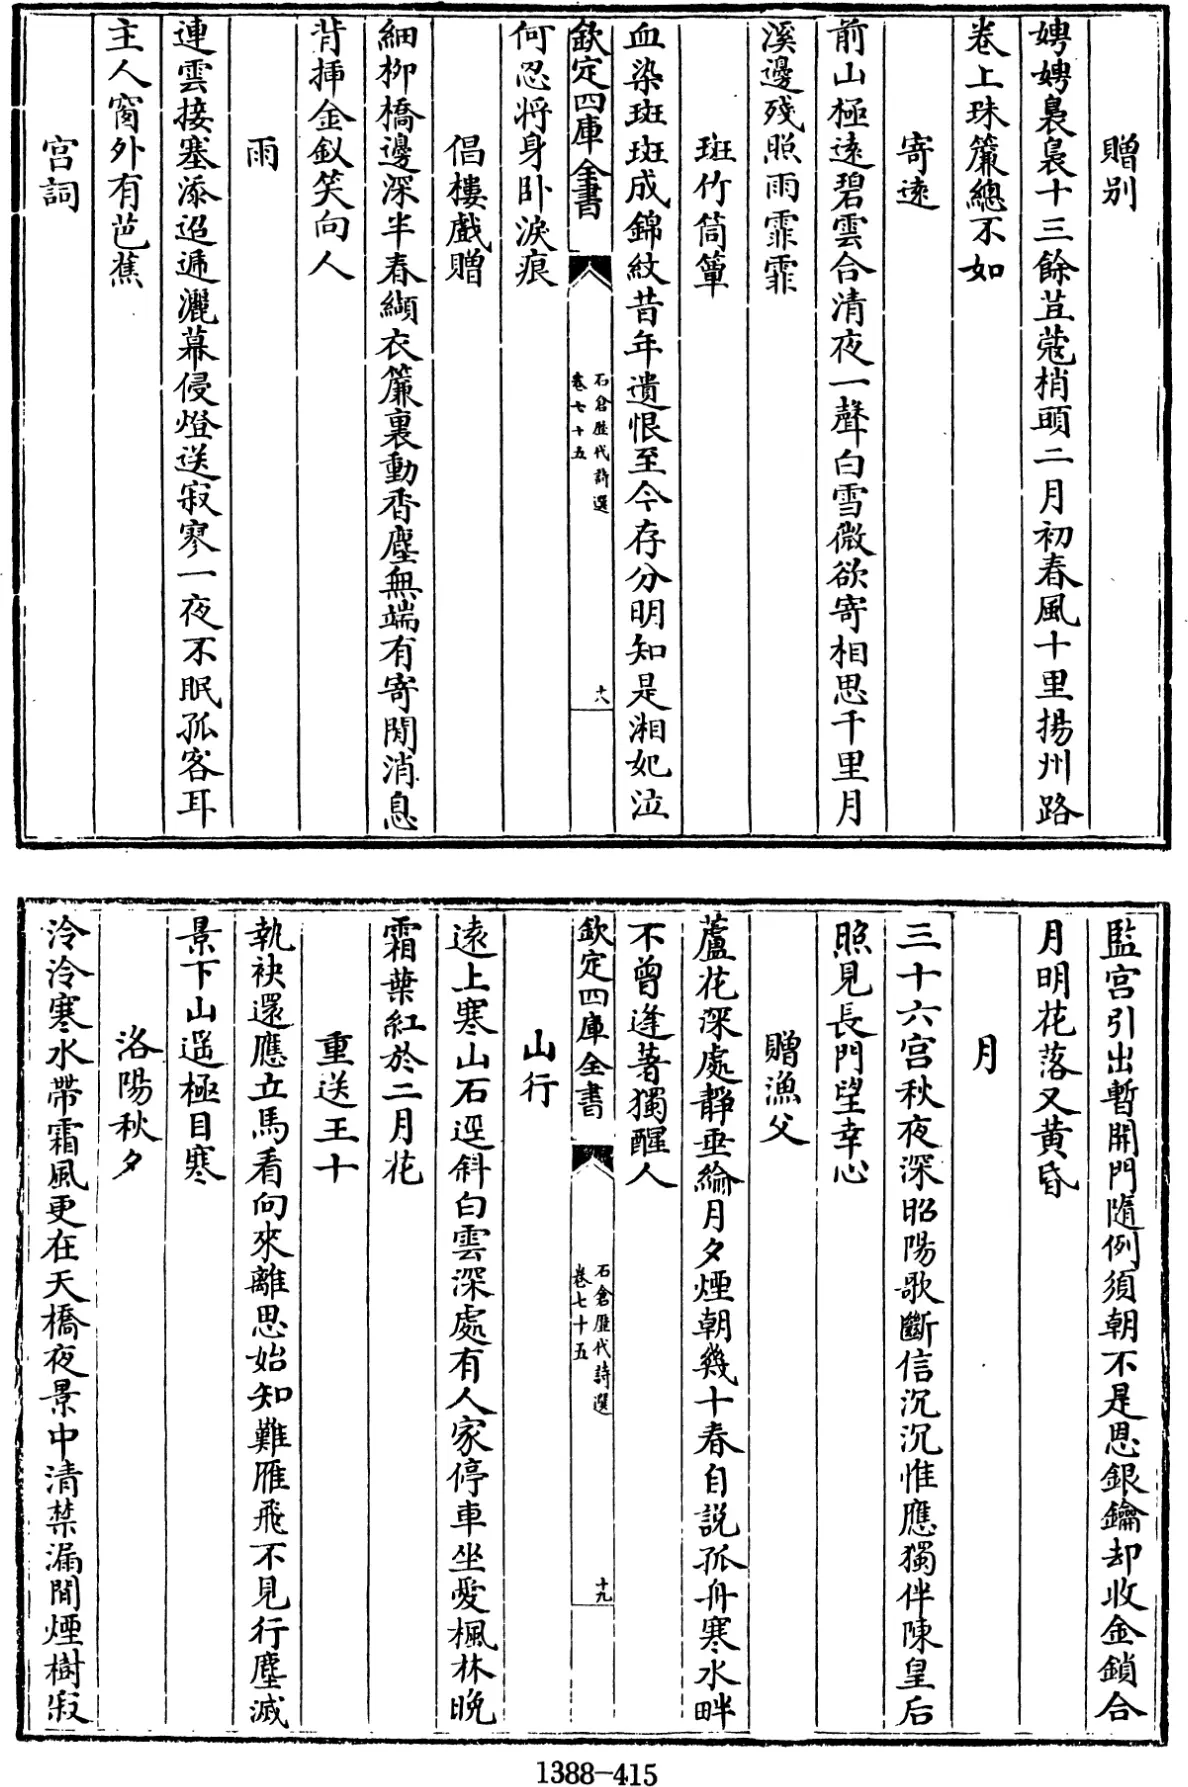 贈别
娉娉裊裊十三餘荳蔻梢頭二月初春風十里揚州路
卷上珠簾總不如
寄逺
前山極逺碧雲合清夜一聲白雪微欲寄相思千里月
溪邊殘照雨霏霏
斑竹筒簟
血染斑斑成錦紋昔年遺恨至今存分明知是湘妃泣
欽定四庫全書
石倉歴代詩選
卷七十五
十八
何忍將身卧淚痕
倡樓戲贈
細柳橋邊深半春纈衣簾裏動香塵無端有寄閒消息
背插金釵笑向人
雨
連雲接塞添迢遞灑幕侵燈送寂寥一夜不眠孤客耳
主人窗外有芭蕉
宫詞
監宫引出暫開門隨例須朝不是恩銀鑰却收金鎖合
月明花落又黄昏
月
三十六宫秋夜深昭陽歌斷信沉沉惟應獨伴陳皇后
照見長門望幸心
贈漁父
蘆花深處靜垂綸月夕煙朝幾十春自説孤舟寒水畔
不曾逢著獨醒人
欽定四庫全書
石倉歴代詩選
卷七十五
十九
山行
逺上寒山石逕斜白雲深處有人家停車坐愛楓林晩
霜葉紅於二月花
重送王十
執袂還應立馬看向來離思始知難雁飛不見行塵滅
景下山遥極目寒
洛陽秋夕
泠泠寒水帶霜風更在天橋夜景中清禁漏閒煙樹寂
1388-415